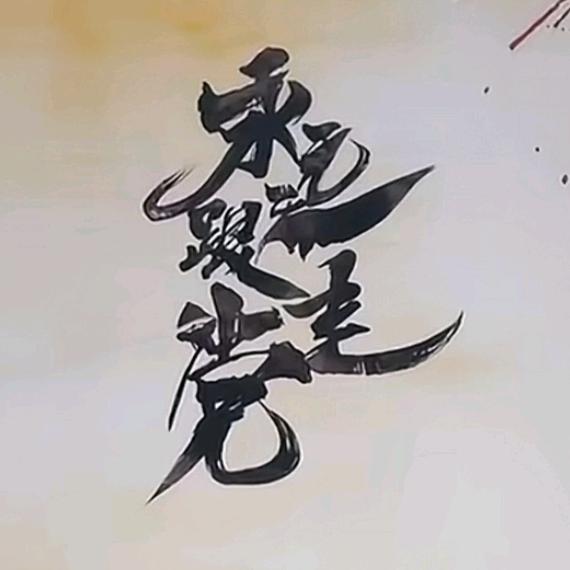 永远
跟党
走